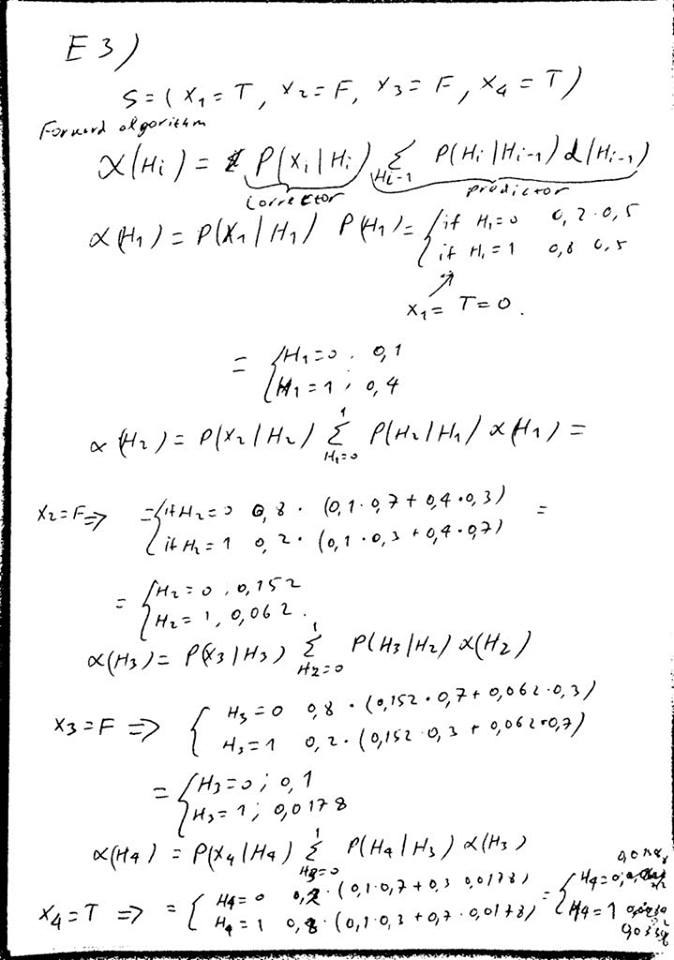 E3)
S = ( X₁ = T, X₂ = F, X₃ = F, X₄ = T )
Forward algorithm
α(Hᵢ) = P(Xᵢ|Hᵢ) Σ_{Hᵢ₋₁} P(Hᵢ|Hᵢ₋₁) α(Hᵢ₋₁)
corrector predictor
α(H₁) = P(X₁|H₁) P(H₁) = { if H₁=0 0,2·0,5
if H₁=1 0,8 0,5
X₁ = T=0.
= { H₁=0. 0,1
H₁=1; 0,4
α(H₂) = P(X₂|H₂) Σ_{H₁=0}^{1} P(H₂|H₁) α(H₁) =
X₂=F => = { if H₂=0 0,8 · (0,1·0,7+0,4·0,3) =
if H₂=1 0,2 · (0,1·0,3+0,4·0,7)
= { H₂=0, 0,152
H₂=1, 0,062.
α(H₃) = P(X₃|H₃) Σ_{H₂=0}^{1} P(H₃|H₂) α(H₂)
X₃=F => { H₃=0 0,8 · (0,152·0,7+0,062·0,3)
H₃=1 0,2·(0,152·0,3+0,062·0,7)
= { H₃=0; 0,1
H₃=1; 0,0178
α(H₄) = P(X₄|H₄) Σ_{H₃=0}^{1} P(H₄|H₃) α(H₃)
X₄=T => = { H₄=0 0,2·(0,1·0,7+0,3 0,0178) = { H₄=0,
H₄=1 0,8·(0,1·0,3+0,7·0,0178) H₄=1